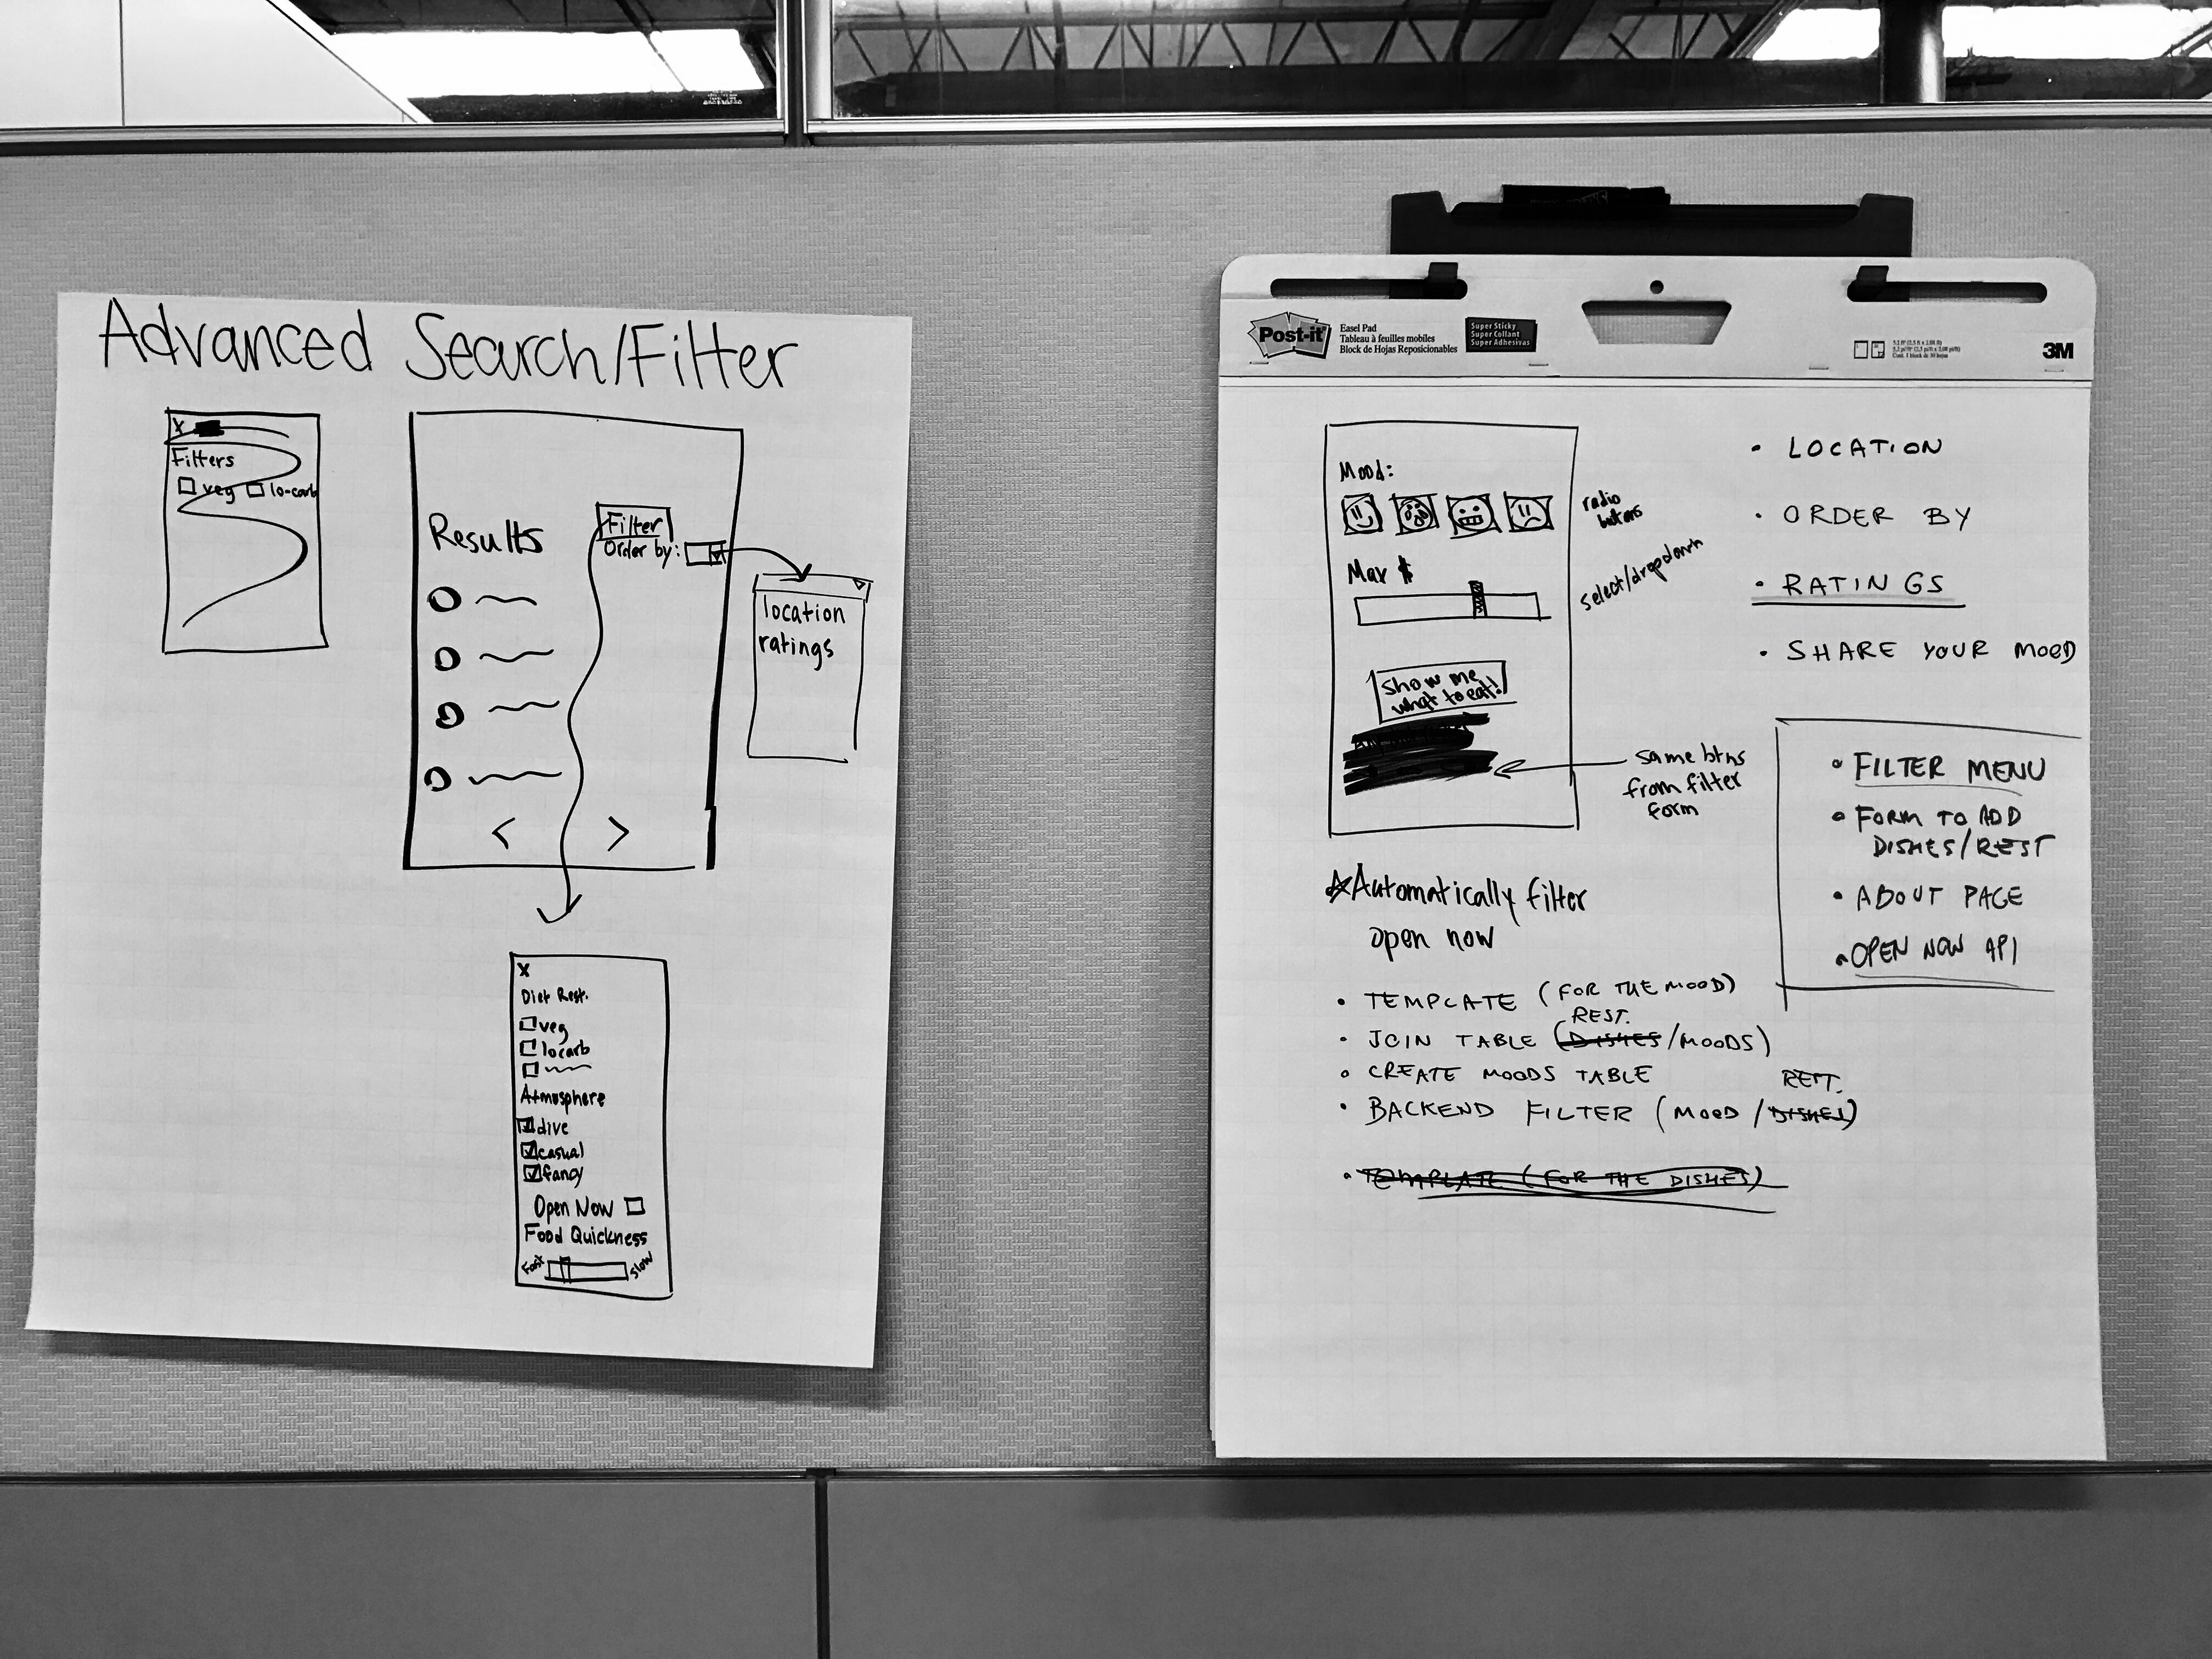 Advanced Search/Filter
X
Filters
veg lo-carb
Results
Filter
Order by:
location
ratings
X
Diet Rest.
veg
locarb
Atmosphere
dive
casual
fancy
Open Now
Food Quickness
Fast
Slow
Post-it
Easel Pad
Tableau à feuilles mobiles
Block de Hojas Reposicionables
Super Sticky
Super Collant
Super Adhesivas
3M
Mood:
radio
Max $
select/dropdown
Show me
what to eat!
same btns
from filter
form
• LOCATION
• ORDER BY
• RATINGS
• SHARE YOUR MOOD
• FILTER MENU
• FORM TO ADD
DISHES/REST
• ABOUT PAGE
• OPEN NOW API
Automatically filter
open now
• TEMPLATE (FOR THE MOOD)
REST.
• JOIN TABLE (DISHES/MOODS)
• CREATE MOODS TABLE
REST.
• BACKEND FILTER (MOOD/DISHES)
• TEMPLATE (FOR THE DISHES)